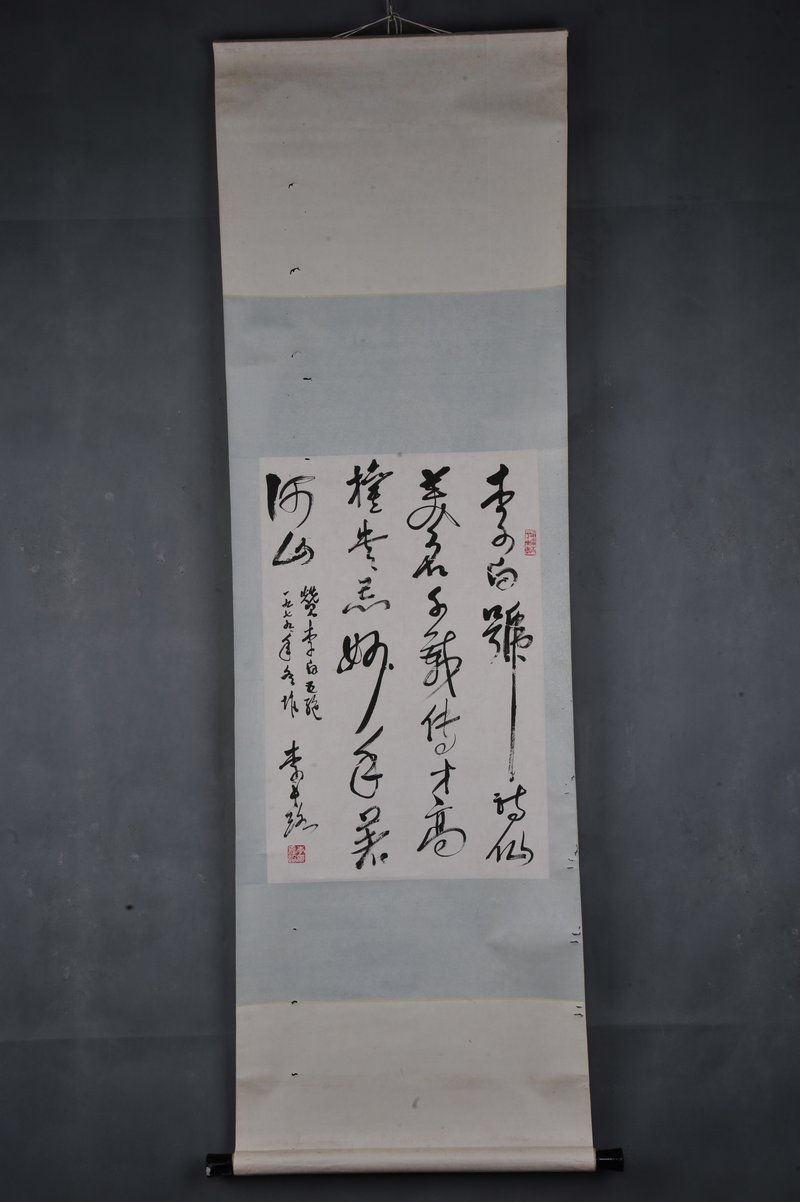 李白號詩仙
美名千載傳才高
權貴忌妙手著
河山
贊李白五絕
一九七九年冬
李